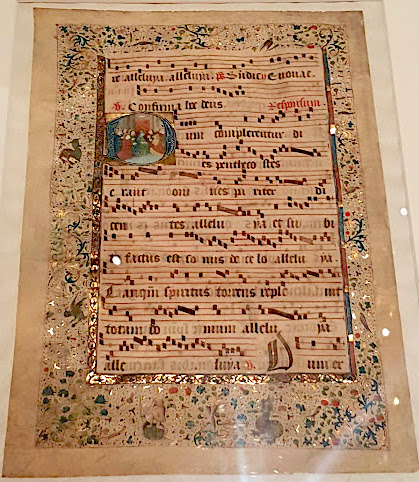 alleluya. alleluya. Euouae.
Confirma hoc deus Responsum
Dum complerentur di
es penthecostes
erant omnes pariter di
centes alleluya et subi
to factus est sonus de celo alleluya
Tanq̄m spiritus torrens repleuit
totam domum alleluya
alleluya Dum er